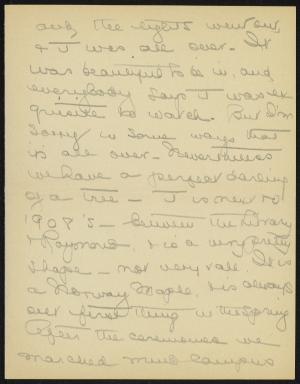 and the lights went out,
& it was all over - It
was beautiful to be in, and
everybody says it was ex
quisite to watch. But I'm
sorry in some ways that
it's all over - Nevertheless
we have a perfect darling
of a tree - It is next to
1908's - between the library
& Raymond, & is a very pretty
shape - not very tall. It is
a Norway Maple, & is always
out first thing in the Spring
After the ceremonies we
marched campus